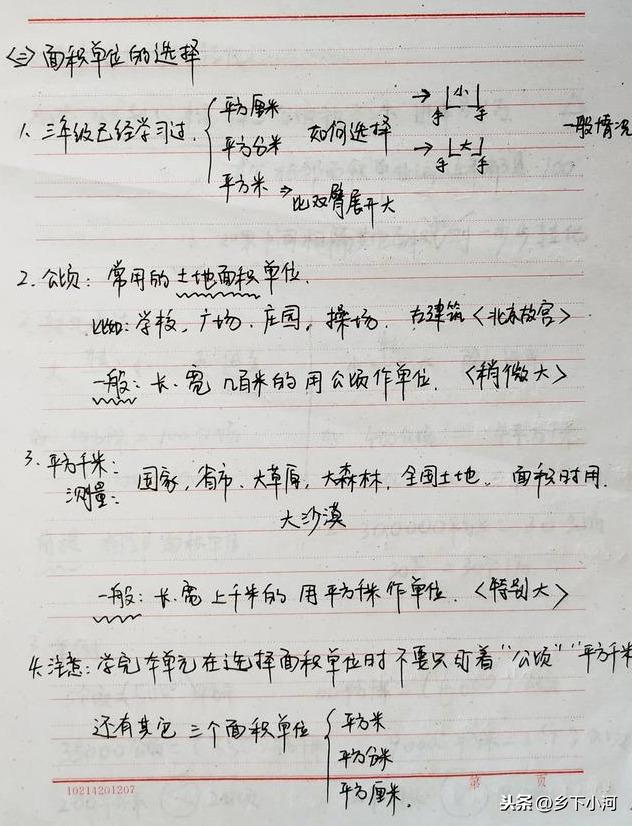 <三> 面积单位的选择
1、三年级已经学习过. { 平方厘米 平方分米 平方米 如何选择 → 手 小 手
→ 手 大 手 一般情况
⇒ 比双臂展开大
2、公顷: 常用的土地面积单位.
比如: 学校, 广场. 庄园, 操场. 古建筑<北京故宫>
一般: 长、宽 几百米的 用公顷作单位. <稍微大>
3、平方千米:
测量: 国家, 省市、大草原, 大森林, 全国土地. 面积时用.
大沙漠
一般: 长、宽 上千米的 用平方千米作单位. <特别大>
4、注意: 学完本单元在选择面积单位时不要只盯着“公顷”“平方千米
还有其它 三个面积单位 { 平方米
平方分米
平方厘米.
10214201207 第 页
头条@乡下小河